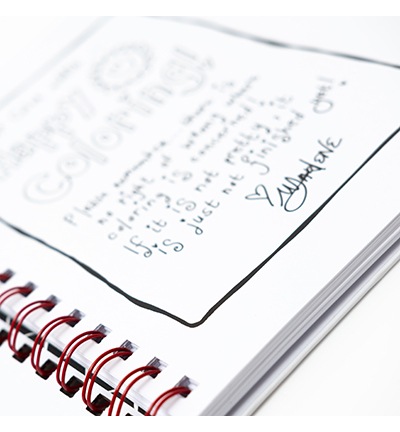 Happy
Coloring!
Please remember there is
no right or wrong where
coloring is concerned!
If it is not pretty, it
is just not finished yet!
♡ Marlene